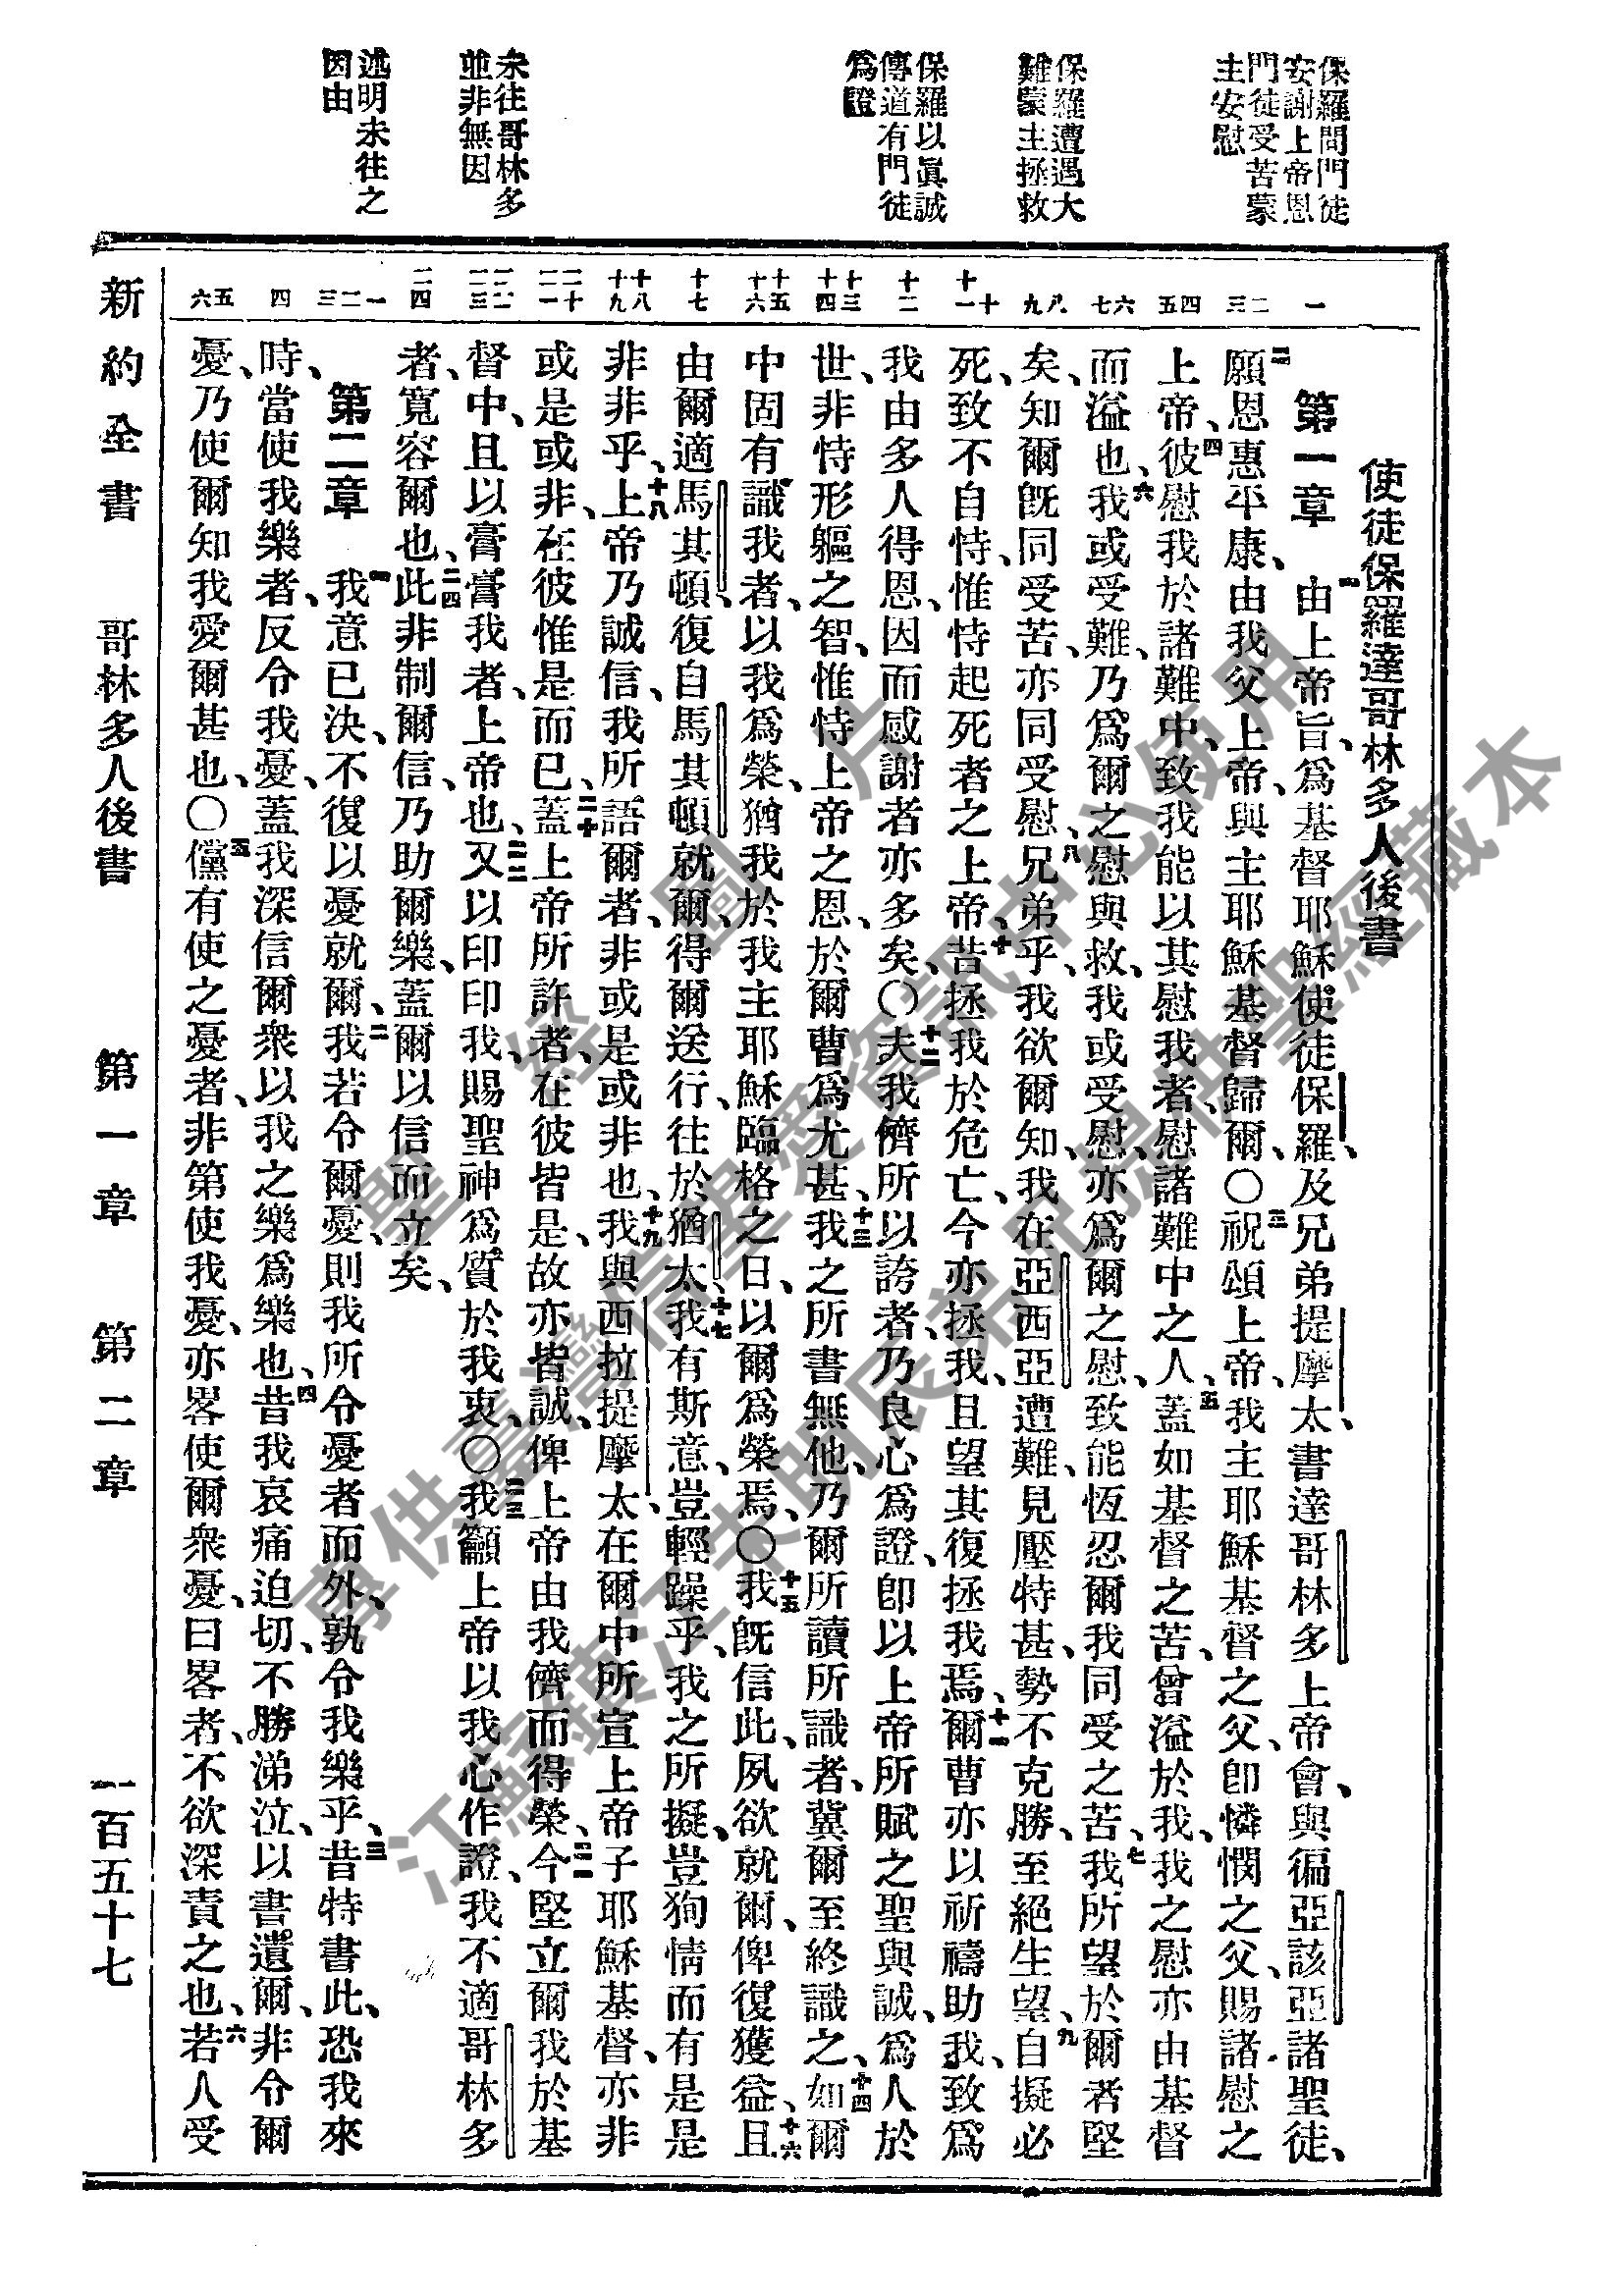 保羅問門徒
安謝上帝恩
門徒受苦蒙
主安慰
保羅遭遇大
難蒙主拯救
保羅以眞誠
傳道有門徒
爲證
未往哥林多
並非無因
述明未往之
因由
一
二三
四五
六七
八九
十十一
十二
十三十四
十五十六
十七
十八十九
二十二一
二二二三
二四
一二三
四
五六
使徒保羅達哥林多人後書
第一章 一由上帝旨、爲基督耶穌使徒保羅、及兄弟提摩太、書達哥林多上帝會、與徧亞該亞諸聖徒、
二願恩惠平康、由我父上帝、與主耶穌基督歸爾、〇三祝頌上帝、我主耶穌基督之父、卽憐憫之父、賜諸慰之
上帝、四彼慰我於諸難中、致我能以其慰我者、慰諸難中之人、五蓋如基督之苦、曾溢於我、我之慰亦由基督
而溢也、六我或受難、乃爲爾之慰與救、我或受慰、亦爲爾之慰、致能恆忍爾我同受之苦、七我所望於爾者堅
矣、知爾旣同受苦、亦同受慰、八兄弟乎、我欲爾知、我在亞西亞遭難、見壓特甚、勢不克勝、至絕生望、九自擬必
死、致不自恃、惟恃起死者之上帝、十昔拯我於危亡、今亦拯我、且望其復拯我焉、十一爾曹亦以祈禱助我、致爲
我由多人得恩、因而感謝者亦多矣、〇十二夫我儕所以誇者、乃良心爲證、卽以上帝所賦之聖與誠、爲人於
世、非恃形軀之智、惟恃上帝之恩、於爾曹爲尤甚、十三我之所書無他、乃爾所讀所識者、冀爾至終識之、十四如爾
中固有識我者、以我爲榮、猶我於我主耶穌臨格之日、以爾爲榮焉、〇十五我旣信此、夙欲就爾、俾復獲益、十六且
由爾適馬其頓、復自馬其頓就爾、得爾送行、往於猶太、十七我有斯意、豈輕躁乎、我之所擬、豈狥情而有是是
非非乎、十八上帝乃誠信、我所語爾者、非或是或非也、十九我與西拉提摩太、在爾中所宣上帝子耶穌基督、亦非
或是或非、在彼惟是而已、二十蓋上帝所許者、在彼皆是、故亦皆誠、俾上帝由我儕而得榮、二一今堅立爾我於基
督中、且以膏膏我者、上帝也、二二又以印印我、賜聖神爲質於我衷、〇二三我籲上帝以我心作證、我不適哥林多
者、寬容爾也、二四此非制爾信、乃助爾樂、蓋爾以信而立矣、
第二章 一我意已決、不復以憂就爾、二我若令爾憂、則我所令憂者而外、孰令我樂乎、三昔特書此、恐我來
時、當使我樂者、反令我憂、蓋我深信爾衆以我之樂爲樂也、四昔我哀痛迫切、不勝涕泣、以書遺爾、非令爾
憂、乃使爾知我愛爾甚也、〇五儻有使之憂者、非第使我憂、亦畧使爾衆憂、曰畧者、不欲深責之也、六若人受
新約全書 哥林多人後書 第一章 第二章 一百五十七
聖經圖片
專供臺灣信望愛資訊中心使用
江蘇鎮江朱明民弟兄提供聖經藏本